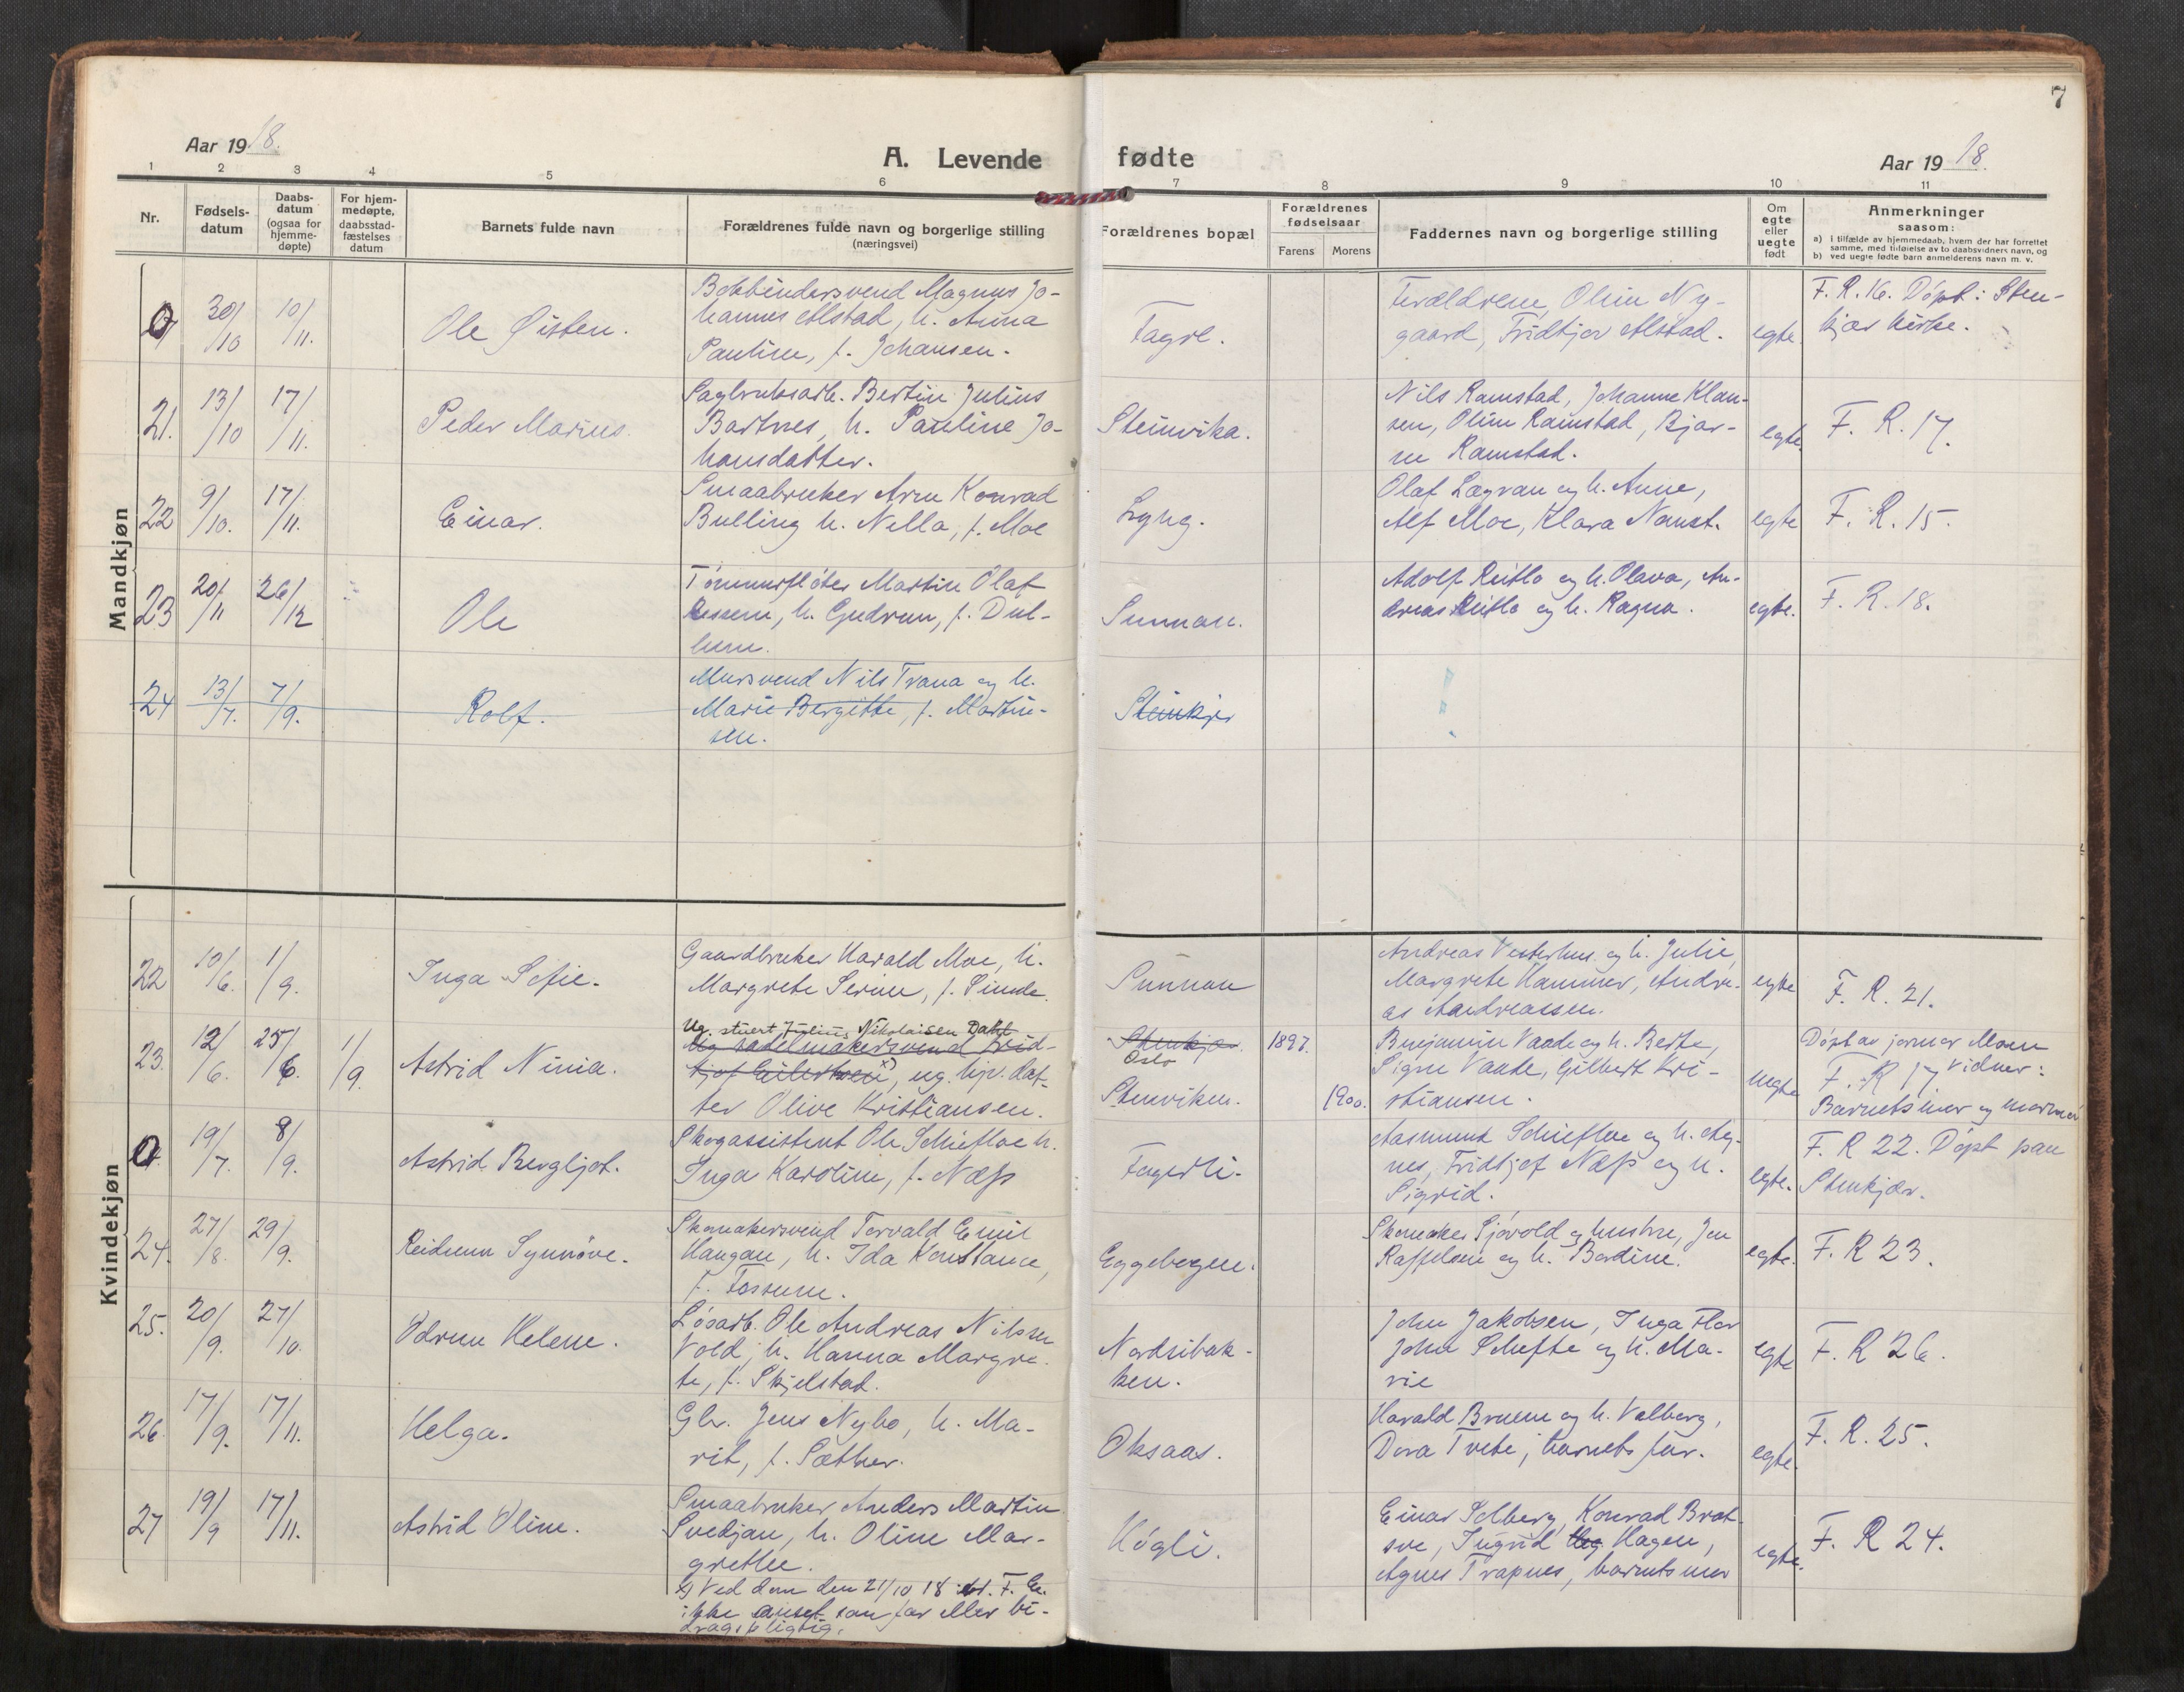 7
Aar 1918.
A. Levende fødte
Aar 1918.
1 2 3 4 5 6 7 8 9 10 11
Nr.
Fødsels-
datum
Daabs-
datum
(ogsaa for
hjemme-
døpte)
For hjem-
medøpte,
daabsstad-
fæstelses
datum
Barnets fulde navn
Forældrenes fulde navn og borgerlige stilling
(næringsvei)
Forældrenes bopæl
Forældrenes
fødselsaar
Farens Morens
Faddernes navn og borgerlige stilling
Om
egte
eller
uegte
født
Anmerkninger
saasom:
a) i tilfælde av hjemmedaab, hvem der har forrettet
samme, med tilføielse av to daabsvidners navn, og
b) ved uegte fødte barn anmelderens navn m. v.
Mandkjøn
0 30/10 10/11.
Ole Øisten.
Bokbindersvend Magnus Jo-
hannes Alstad, h. Anna
Pauline, f. Johansen.
Fagre.
Forældrene, Olin Ny-
gaard, Fridtjov Alstad.
egte.
F. R. 16. Döpt i Sten-
kjær kirke.
21. 13/10 17/11.
Peder Marius.
Sagbruksarb. Bertin Julius
Bartnes, h. Pauline Jo-
hansdatter.
Steinvika.
Nils Ramstad, Johanne Klau-
sen, Oline Ramstad, Bjar-
ne Ramstad.
egte.
F. R. 17.
22 9/10. 17/11.
Einar.
Smaabruker Arne Konrad
Bulling h. Nella, f. Moe
Lyng.
Olaf Lægran og h. Anne,
Alf Moe, Klara Naust.
egte
F. R. 15.
23 20/11 26/12
Ole
Tömmerflöter Martin Olaf
Lessem, h. Gudrun, f. Dul-
lum.
Sunnan.
Adolf Reitlo og h. Olava, An-
dreas Reitlo og h. Ragna.
egte.
F. R. 18.
24 13/7. 7/9.
Rolf.
Mursvend Nils Trana og h.
Marie Bergitte, f. Martin-
sen.
Steinkjer
Kvindekjøn
22 10/6. 1/9.
Inga Sofie.
Gaardbruker Harald Moe, h.
Margrete Serine, f. Sunde.
Sunnan
Andreas Vesterhus og h. Julie,
Margrete Hammer, Andre-
as Andreassen.
egte
F. R. 21.
23. 12/6. 25/6. 1/9.
Astrid Ninia.
Ug. stuert Julius Nikolaisen Dahl
Ug. sadelmakersvend Frid-
tjof Eilertsen x), ug. hpv. dat-
ter Olive Kristiansen.
Stenkjær.
Oslo
Stenviken.
1897.
1900.
Benjamin Vaade og h. Berte,
Signe Vaade, Gilbert Kri-
stiansen.
uegte
Döpt av jormor Moen
F. R 17 Vidner:
Barnets mor og mormor
0. 19/7. 8/9.
Astrid Bergljot.
Skogassistent Ole Schiefloe h.
Inga Karoline, f. Næss
Fagerli.
Aasmund Schiefloe og h. Ag-
nes, Fridtjof Næss og h.
Sigrid.
egte.
F. R 22. Döpt paa
Stenkjær.
24. 27/8. 29/9.
Reidunn Synnöve.
Skomakersvend Torvald Emil
Haugan, h. Ida Konstance,
f. Fossum.
Eggebogen.
Skomaker Sjövold og hustru, Jon
Raffelsen og h. Bardine.
egte.
F. R 23.
25. 20/9. 27/10.
Odrun Helene.
Lösarb. Ole Andreas Nilssen
Vold, h. Hanna Margre-
te, f. Skjelstad.
Nordsibak-
ken.
John Jakobsen, Inga Flor
John Schefte og h. Ma-
rie
egte
F. R 26.
26. 17/9. 17/11.
Helga.
Gbr. Jens Nybo, h. Ma-
rit, f. Sæther.
Oksaas.
Harald Bruem og h. Valborg,
Dora Tvete, barnets far.
egte.
F. R. 25.
27 19/9 17/11.
Astrid Oline.
Smaabruker Anders Martin
Svedjan, h. Oline Mar-
grethe.
Högli.
Einar Selberg, Konrad Brat-
sve, Ingrid Hagen,
Agnes Trapnes, barnets mor
egte.
F. R 24.
x) Ved dom den 21/10 18 bl. F. E.
ikke anset som far eller bi-
dragspligtig.